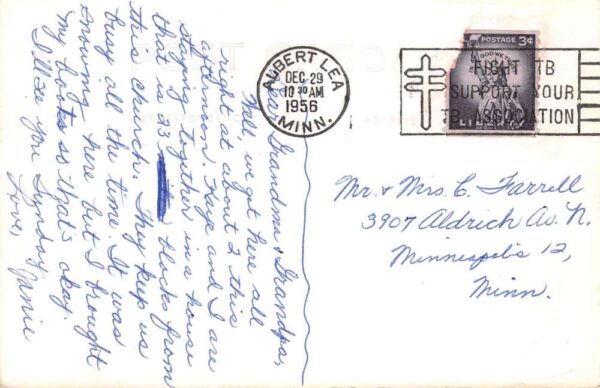 Dear Grandma & Grandpa,
Well, we got here all
right about 2 this
afternoon. Kaye and I are
staying together in a house
that is 33 blocks from
this church. They keep us
busy all the time. It was
snowing here but I brought
my boots so that's okay.
I'll see you Sunday.
Love, Janie
ALBERT LEA
DEC 29
10 30 AM
1956
MINN.
POSTAGE 3¢
IN GOD WE TRUST
LIBERTY
FIGHT TB
SUPPORT YOUR
TB ASSOCIATION
Mr. & Mrs. C. Farrell
3907 Aldrich Av. N.
Minneapolis 12,
Minn.